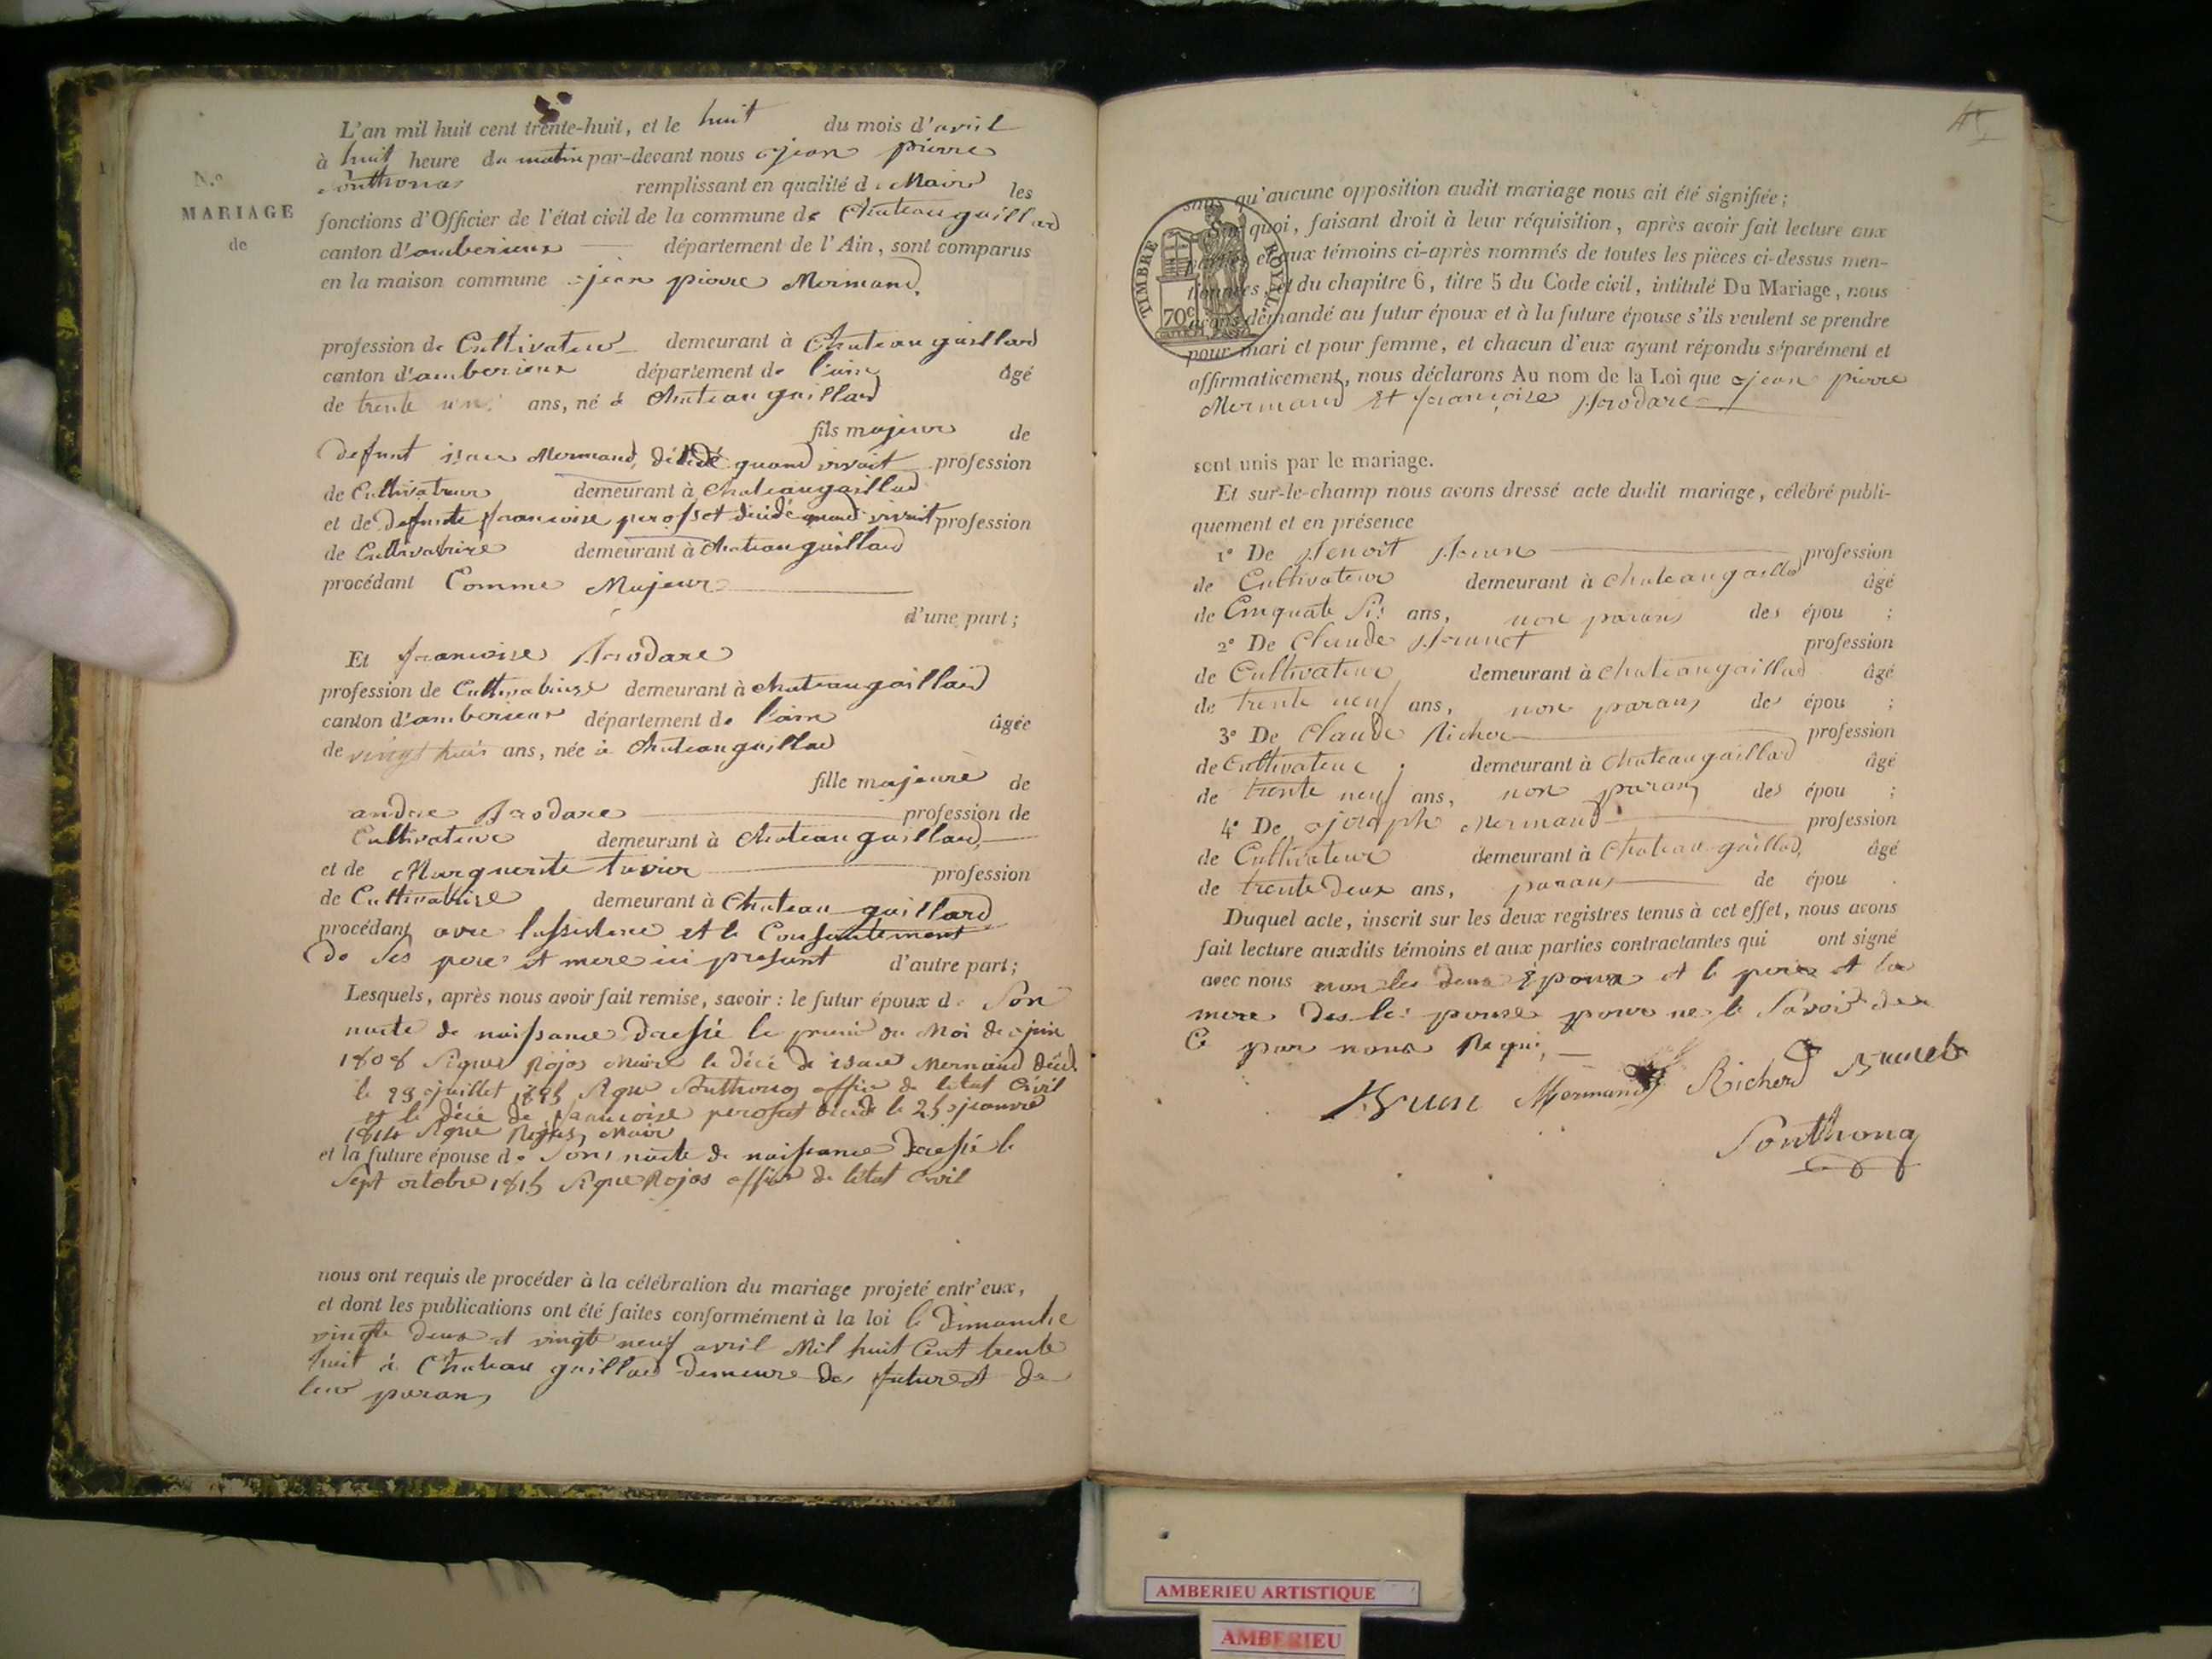 L'an mil huit cent trente-huit, et le huit du mois d'avril
à huit heure du matin par-devant nous jean pierre
Sonthonas remplissant en qualité de Maire les
N.º
MARIAGE
de
fonctions d'Officier de l'état civil de la commune de Chateaugaillard
canton d'amberieux département de l'Ain, sont comparus
en la maison commune jean pierre Mermand
profession de Cultivateur demeurant à Chateaugaillard
canton d'amberieux département de l'ain âgé
de trente un ans, né à Chateaugaillard
fils majeur de
defunt isaac Mermand, décédé quand vivait profession
de Cultivateur demeurant à Chateaugaillard
et de defunte francoise perosset décidé quand vivait profession
de Cultivatrice demeurant à Chateaugaillard
procédant Comme Majeur
d'une part;
Et francoise Brodare
profession de Cultivatrice demeurant à chateaugaillard
canton d'amberieux département de l'ain âgée
de vingt huit ans, née à Chateaugaillard
fille majeure de
andre Brodare profession de
Cultivateur demeurant à Chateaugaillard
et de Marguerite tuvier profession
de Cultivatrice demeurant à Chateau gaillard
procédant avec lassistance et le Consentement
De Ses pere et mere ici present d'autre part;
Lesquels, après nous avoir fait remise, savoir : le futur époux de Son
nacte de naissance Dressé le premie du Moi de juin
1808 Signé Rojas Maire le décé de isaac Mermand décéd
le 29 juillet Signe Sonthonas officie de letat Civil
et le décé de francoise perosset décidé le 25 janvre
1814 Signé Rojas, Maire
et la future épouse de Son nacte de naissance Dressé le
Sept octobre 1815 Signe Rojas officie de letat Civil
nous ont requis de procéder à la célébration du mariage projeté entr'eux,
et dont les publications ont été faites conformément à la loi le Dimanche
vingte deux et vingte neuf avril Mil huit Cent trente
huit à Chateau gaillard Demeure des futures et de
leur parans
sans qu'aucune opposition audit mariage nous ait été signifiée;
Sur quoi, faisant droit à leur réquisition, après avoir fait lecture aux
parties et aux témoins ci-après nommés de toutes les pièces ci-dessus men-
tionnées, et du chapitre 6, titre 5 du Code civil, intitulé Du Mariage, nous
avons demandé au futur époux et à la future épouse s'ils veulent se prendre
pour mari et pour femme, et chacun d'eux ayant répondu séparément et
affirmativement, nous déclarons Au nom de la Loi que jean pierre
Mermand Et francoise Brodare
TIMBRE ROYAL
70c
sont unis par le mariage.
Et sur-le-champ nous avons dressé acte dudit mariage, célébré publi-
quement et en présence
1º De Benoit Brun profession
de Cultivateur demeurant à Chateaugailld âgé
de Cinquate Sis ans, non parans des épou ;
2º De Claude Brunet profession
de Cultivateur demeurant à chateaugaillard âgé
de trente neuf ans, non parans des épou ;
3º De Claude Richer profession
de Cultivateur demeurant à Chateaugaillard âgé
de trente neuf ans, non parans des épou ;
4º De joseph Mermand profession
de Cultivateur demeurant à Chateau gaillard, âgé
de trente Deux ans, parans de épou .
Duquel acte, inscrit sur les deux registres tenus à cet effet, nous avons
fait lecture auxdits témoins et aux parties contractantes qui ont signé
avec nous non les deux Epoux et le pere et la
mere des le pouse pour ne le Savoir de
Ce par nous Requi,
Brun Mermand Richerd Brunet
Sonthona
AMBERIEU ARTISTIQUE
AMBERIEU